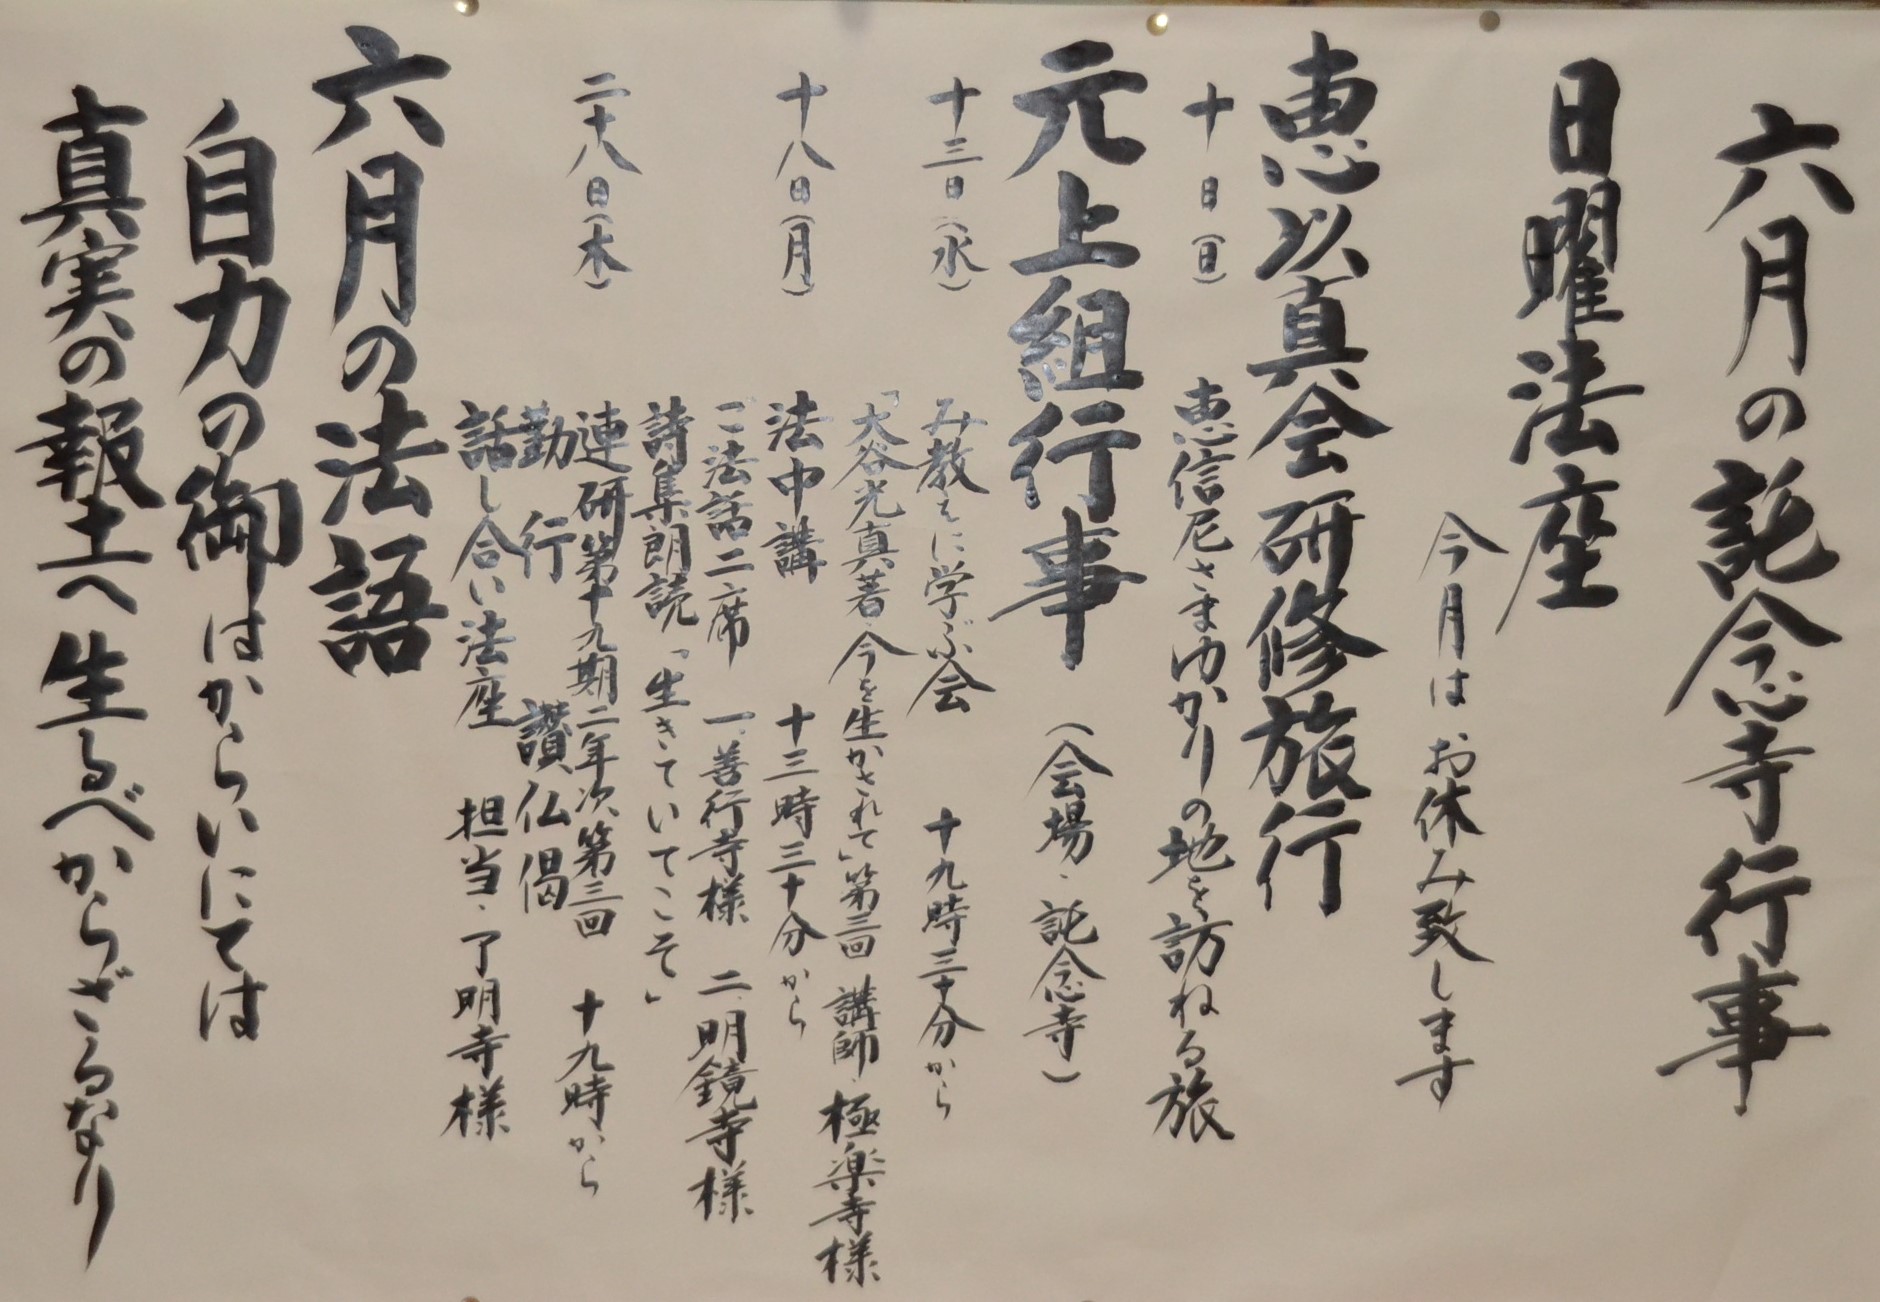 六月の託念寺行事
日曜法座
今月は お休み致します
恵以真会研修旅行
十日(日) 恵信尼さまゆかりの地を訪ねる旅
元上組行事 (会場、託念寺)
十三日(水) み教えに学ぶ会 十九時三十分から
「大谷光真著、今を生かされて」第三回 講師、極楽寺様
十八日(月) 法中講 十三時三十分から
ご法話二席 一、善行寺様 二、明鏡寺様
詩集朗読「生きていてこそ」
二十八日(木) 連研第十九期二年次第三回 十九時から
勤行 讃仏偈
話し合い法座 担当、了明寺様
六月の法語
自力の御はからいにては
真実の報土へ生るべからざるなり